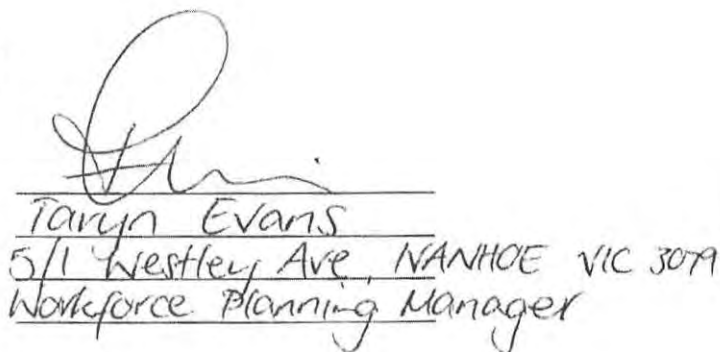 Taryn Evans
5/1 Westley Ave, IVANHOE VIC 3079
Workforce Planning Manager